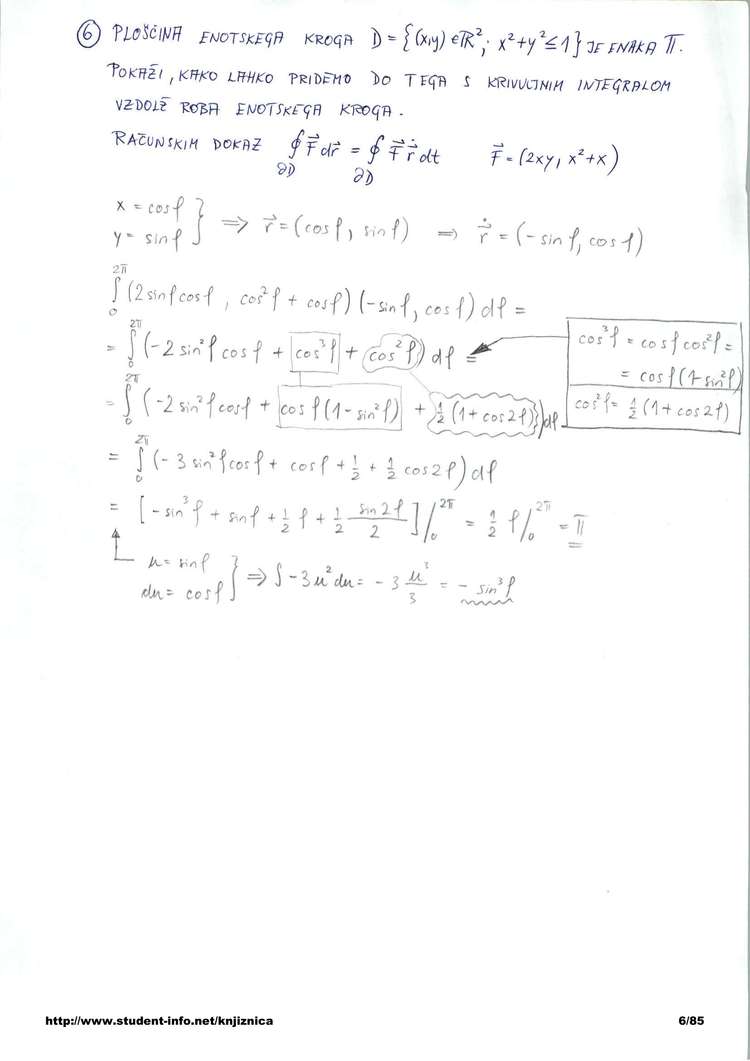 ⑥ PLOŠČINA ENOTSKEGA KROGA D = {(x,y) ∈ ℝ²; x²+y² ≤ 1} JE ENAKA π.
POKAŽI, KAKO LAHKO PRIDEMO DO TEGA S KRIVULJNIM INTEGRALOM
VZDOLŽ ROBA ENOTSKEGA KROGA.
RAČUNSKIM DOKAZ ∮_∂D F⃗ dr⃗ = ∮_∂D F⃗ ṙ⃗ dt F⃗ = (2xy, x²+x)
x = cos φ
y = sin φ } ⟹ r⃗ = (cos φ, sin φ) ⟹ ṙ⃗ = (-sin φ, cos φ)
∫₀^2π (2 sin φ cos φ, cos² φ + cos φ)(-sin φ, cos φ) dφ =
= ∫₀^2π (-2 sin² φ cos φ + cos³ φ + cos² φ) dφ =
cos³ φ = cos φ cos² φ =
= cos φ (1-sin² φ)
cos² φ = 1/2 (1 + cos 2φ)
= ∫₀^2π (-2 sin² φ cos φ + cos φ (1-sin² φ) + 1/2 (1 + cos 2φ)) dφ
= ∫₀^2π (-3 sin² φ cos φ + cos φ + 1/2 + 1/2 cos 2φ) dφ
= [-sin³ φ + sin φ + 1/2 φ + 1/2 sin 2φ / 2] /₀^2π = 1/2 φ /₀^2π = π
u = sin φ
du = cos φ } ⟹ ∫ -3u² du = -3 u³/3 = - sin³ φ
http://www.student-info.net/knjiznica 6/85